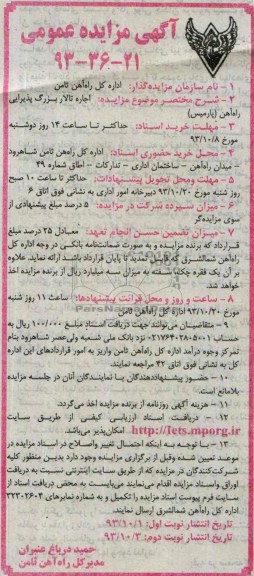 آگهی مزایده عمومی
۹۳-۳۶-۲۱
۱ - نام سازمان مزایده‌گذار: اداره کل راه‌آهن ثامن
۲ - شرح مختصر موضوع مزایده: اجاره تالار بزرگ پذیرایی
راه‌آهن (پارمیس)
۳ - مهلت خرید اسناد: حداکثر تا ساعت ۱۴ روز دوشنبه
مورخ ۹۳/۱۰/۸
۴ - محل خرید حضوری اسناد: اداره کل راه‌آهن ثامن شاهرود
- میدان راه‌آهن - ساختمان اداری - تدارکات - اطاق شماره ۴۹
۵ - مهلت ومحل تحویل پیشنهادات: حداکثر تا ساعت ۱۰ صبح
روز شنبه مورخ ۹۳/۱۰/۲۰ دبیرخانه امور اداری به نشانی فوق اتاق ۶
۶ - میزان سپرده شرکت در مزایده: ۵ درصد مبلغ پیشنهادی از
سوی مزایده‌گر
۷ - میزان تضمین حسن انجام تعهد: معادل ۲۵ درصد مبلغ
قرارداد که برنده مزایده و به صورت ضمانت‌نامه بانکی در وجه اداره کل
راه‌آهن شمالشرق که قابلیت تمدید تا پایان قرارداد باشد ارائه نماید. علاوه
بر آن یک فقره چک سفته به میزان سه میلیارد ریال از برنده مزایده اخذ
خواهد شد.
۸ - ساعت و روز و محل قرائت پیشنهادها: ساعت ۱۱ روز شنبه
مورخ ۹۳/۱۰/۲۰ اداره کل راه‌آهن ثامن
۹ - متقاضیان می‌توانند جهت دریافت اسناد مبلغ ۱۰۰/۰۰۰ ریال به
حساب ۲۱۷۶۴۰۲۸۰۵۰۰۱ نزد بانک ملی شعبه ولی‌عصر شاهرود بنام
تمرکز وجوه درآمد اداره کل راه‌آهن ثامن واریز به امور قراردادهای این اداره
کل به نشانی فوق اتاق ۴۲ مراجعه نمایند.
۱۰ - حضور پیشنهاددهندگان یا نمایندگان آنان در جلسه مزایده
بلامانع است.
۱۱ - هزینه آگهی روزنامه از برنده مزایده اخذ می‌گردد.
۱۲ - دریافت اسناد ارزیابی کیفی از طریق سایت
http://Iets.mporg.ir امکان‌پذیر می‌باشد.
۱۳ - با توجه به اینکه احتمال تغییر واصلاح در اسناد مزایده در
موعد تعیین شده وقبل از برگزاری مزایده وجود دارد بدین منظور کلیه
شرکت‌کنندگان در مزایده که از طریق سایت اینترنتی نسبت به دریافت
اوراق واسناد مزایده اقدام می‌نمایند می‌بایست به محض دریافت اسناد از
سایت فرم پیوست اسناد مزایده را تکمیل و به شماره نمابرهای ۳۲۳۰۲۶۰۴
اداره کل راه‌آهن شمالشرق ارسال نمایند.
تاریخ انتشار نوبت اول: ۹۳/۱۰/۱
تاریخ انتشار نوبت دوم: ۹۳/۱۰/۳
حمید درباغ عنبران
مدیرکل راه‌آهن ثامن